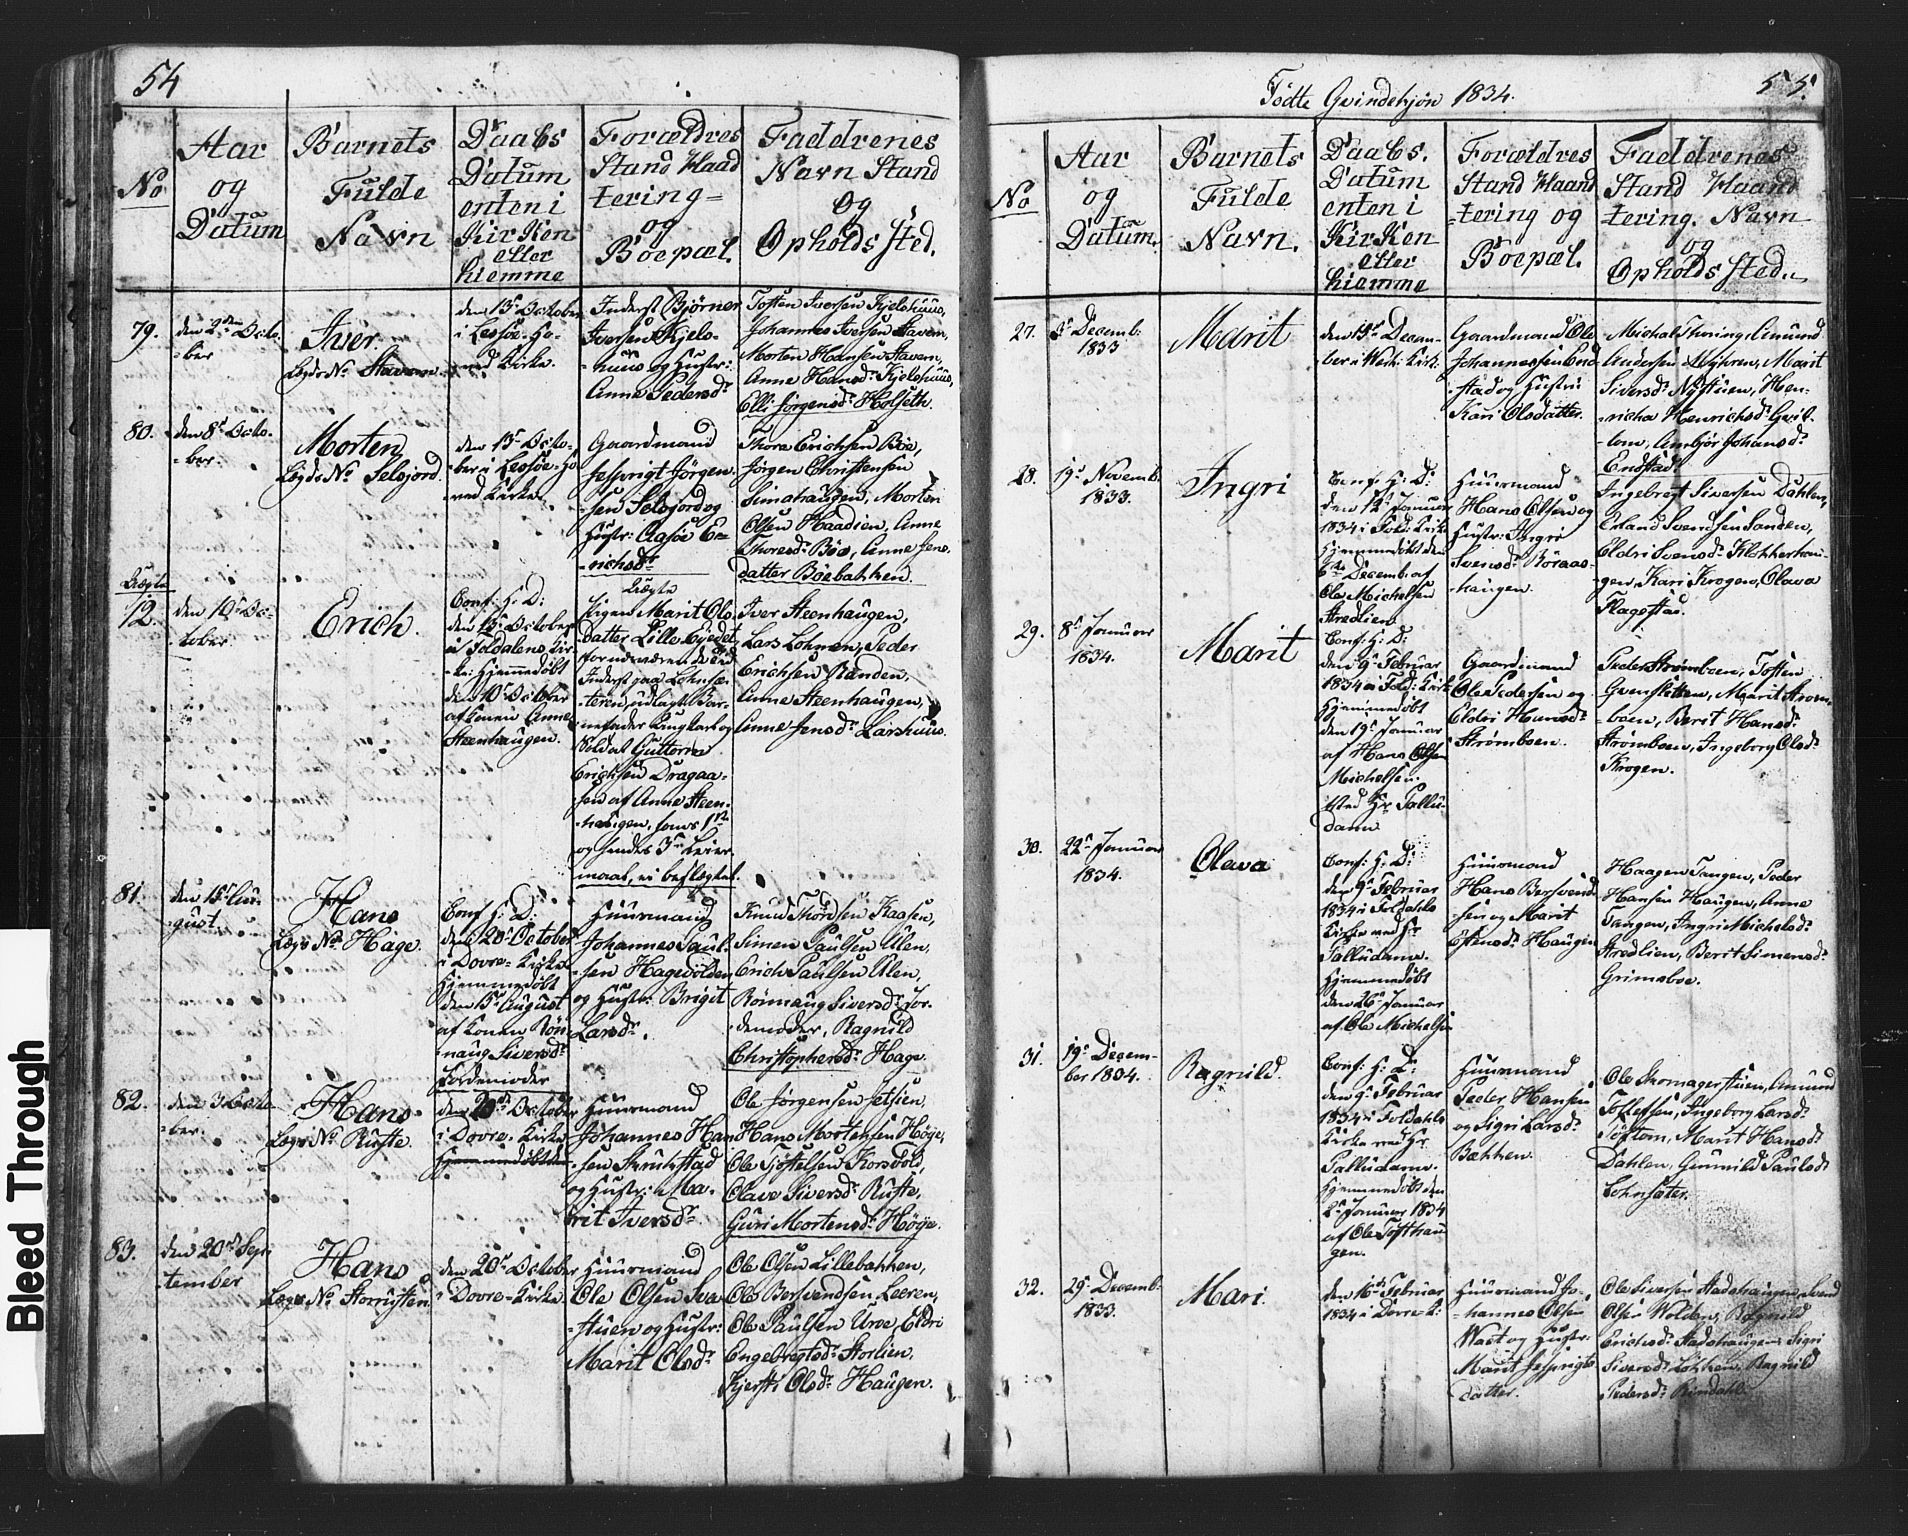 54
No
Aar
og
Datum
Barnets
Fulde
Navn
Daabs
Datum
enten i
Kirken
eller
hiemme
Forældres
Stand Haand
tering=
og
Boepæl.
Faddrenes
Navn Stand
og
Opholds Sted.
79.
den 2den Octo-
-ber
Iver.
Lægds No Stavem
den 13de October
i Lessøe-Ho-
-ved Kirke.
Inderst Bjørner
Iversen Kjels-
-huus og Hustr:
Anne Pedersdr
Tosten Iversen Kjelshuus,
Johannes Iversen Stavem,
Morten Hansen Stavem,
Anne Hansdr Kjelshuus,
Elli Jørgensdr Holseth.
80.
den 8de Octo-
-ber.
Morten
Lægds No Selsjord.
den 13de Octo-
-ber i Lessøe-Ho
-ved Kirke
Gaardmand
Jesprigt Jørgen-
-sen Selsjord og
Hustr: E-
-richsdr
Thore Erichsen Bøe,
Jørgen Christensen
Morten
Olsen Haadien, Anne
Thoresdr Bøe, Anne Jens-
datter Bøebakken.
Uægte
12.
den 10de Oc-
tober
Erich.
Conf: H: D:
den 13de October
i Foldalens Kir-
-ke: Hjemmedøbt
den 10de October
af Konen Anne
Steenhaugen.
Uægte
Pigen Marit Ols-
datter Lille
for nærværende Tid
Inderst paa Lohnsæ-
-teren, udlagt Bar-
-nefader Ungkarl og
Soldat Guttorm
Erichsen Dragaa-
-sen af Anne Steen-
-haugen, hans 1ste
og hendes 3de Leier-
maal, ei beslægtet.
Iver Steenhaugen,
Lars Lohnen, Peder
Erichsen Randen,
Anne Steenhaugen,
Anne Jensdr Larshuus.
81
den 15de Au-
-gust.
Hans
Lægds No Hage.
Conf: H: D:
den 20de October
i Dovre=Kirke
Hjemmedøbt
den 15de August
af Konen Rön-
-naug Siversdr
Jordemoder
Huusmand
Johannes Paul-
-sen Hagevolden
og Hustr: Brigit
Larsdr.
Knud Thordsen Kaasen,
Simen Paulsen Ulen,
Erich Paulsen Ulen,
Rönnaug Siversdr Jor-
-demoder, Ragnild
Christophersdr Hage.
82.
den 3de Octo-
-ber.
Hans
Lægds No Ruste
den 20de October
i Dovre-Kirke
Hjemmedøbt den
Huusmand
Johannes Han-
-sen
og Hustr: Ma-
-rit Iversdr
Ole Jørgensen
Hans Mortensen Høge,
Ole Korsvold,
Olave Siversdr Ruste,
Guri Mortensdr Høge.
83.
den 20de Sep-
-tember
Hans
Lægds No Storrusten
den 20de October
i Dovre=Kirke
Huusmand
Ole Olsen Sva-
-stuen og Hustr:
Marit Olsdr
Ole Olsen Lillebakken,
Ole Bersvendsen Leeren,
Ole Paulsen Urve, Eldri
Engebregtsdr Storlien,
Kjersti Olsdr Haugen.
Fødte Qvindekjøn 1834.
55.
No
Aar
og
Datum.
Barnets
Fulde
Navn.
Daabs.
Datum
enten i
Kirken
eller
hiemme
Forældres
Stand Haand
-tering og
Boepæl.
Faddrenes
Stand Haand
tering. Navn
og
Opholds Sted.
27.
3de Decemb:
1833
Marit
den 15de Decem-
ber i Kirk:
Gaardmand Ole
Johannessen End-
-stad og Hustru
Kari Olsdatter.
Michal Amund
Andersen Marit
Siversdr Nystuen, Hen-
-richa Henrichsdr
Johansdr
Endstad.
28.
19de Novemb.
1833.
Ingri
Conf: H: D:
den 12te Januar
1834 i Fold: Kirke
Hjemmedøbt den
6te Decemb: af
Ole Michelsen
Stredlien
Huusmand
Hans Olsen og
Hustr: Ingri
Svensdr Röraas-
-haugen.
Ingebregt Siversen Dahlen,
Erland Svendsen Sanden,
Eldri Svensdr Klokkerhau-
-gen, Kari Krogen, Olava
Flagestad.
29.
8de Januar
1834.
Marit
Conf: H: D:
den 9de Februar
1834 i Fold: Kirke
Hjemmedøbt
den 19de Januar
af Hans Olsen
Michelsen.
ved Hr Pallu-
dann
Gaardmand
Ole Pedersen og
Eldri Hansdr
Strömboen.
Peder Strömboen, Tosten
Gvenstetten, Marit Ström-
-boen, Berit Hansdr
Strömboen, Ingeborg Olsdr
Krogen.
30.
22de Januar
1834.
Olava
Conf: H: D:
den 9de Februar
1834 i Foldahls
Kirke ved Hr
Palludann.
Hjemmedøbt
den 26de Januar
af Ole Michelsen
Huusmand
Hans Bersvend-
-sen og Marit
Estensdr Haugen
Haagen Tangen, Peder
Hansen Haugen, Anne
Tangen, Ingri Michelsdr
Stredlien, Berit Simensdr
Grimsboe.
31.
19de Decem-
ber 1834.
Ragnild.
Conf: H: D:
den 9de Februar
1834 i Foldahls
Kirke ved Hr
Palludann.
Hjemmedøbt den
2de Januar 1834
af Ole Tofthau-
gen.
Huusmand
Peder Hansen
og Sigri Larsdr
Bækken.
Ole Skomagerstuen, Amund
Tollefsen, Ingeborg Larsdr
Marit Hansdr
Dahlen, Gunnild Paulsdr
Lohnsæter.
32.
29de Decemb.
1833.
Mari.
den 16de Februar
1834 i Dovre-K:
Huusmand Jo-
-hannes Olsen
og Hustr:
Marit Jesprigts
datter.
Ole Siversen Stadshaugen, Svend
Olsen Wolden, Ragnild
Erichsdr Stadshaugen, Sigri
Siversdr Løkken, Ragnild
Pedersdr Rindahl.
Bleed Through